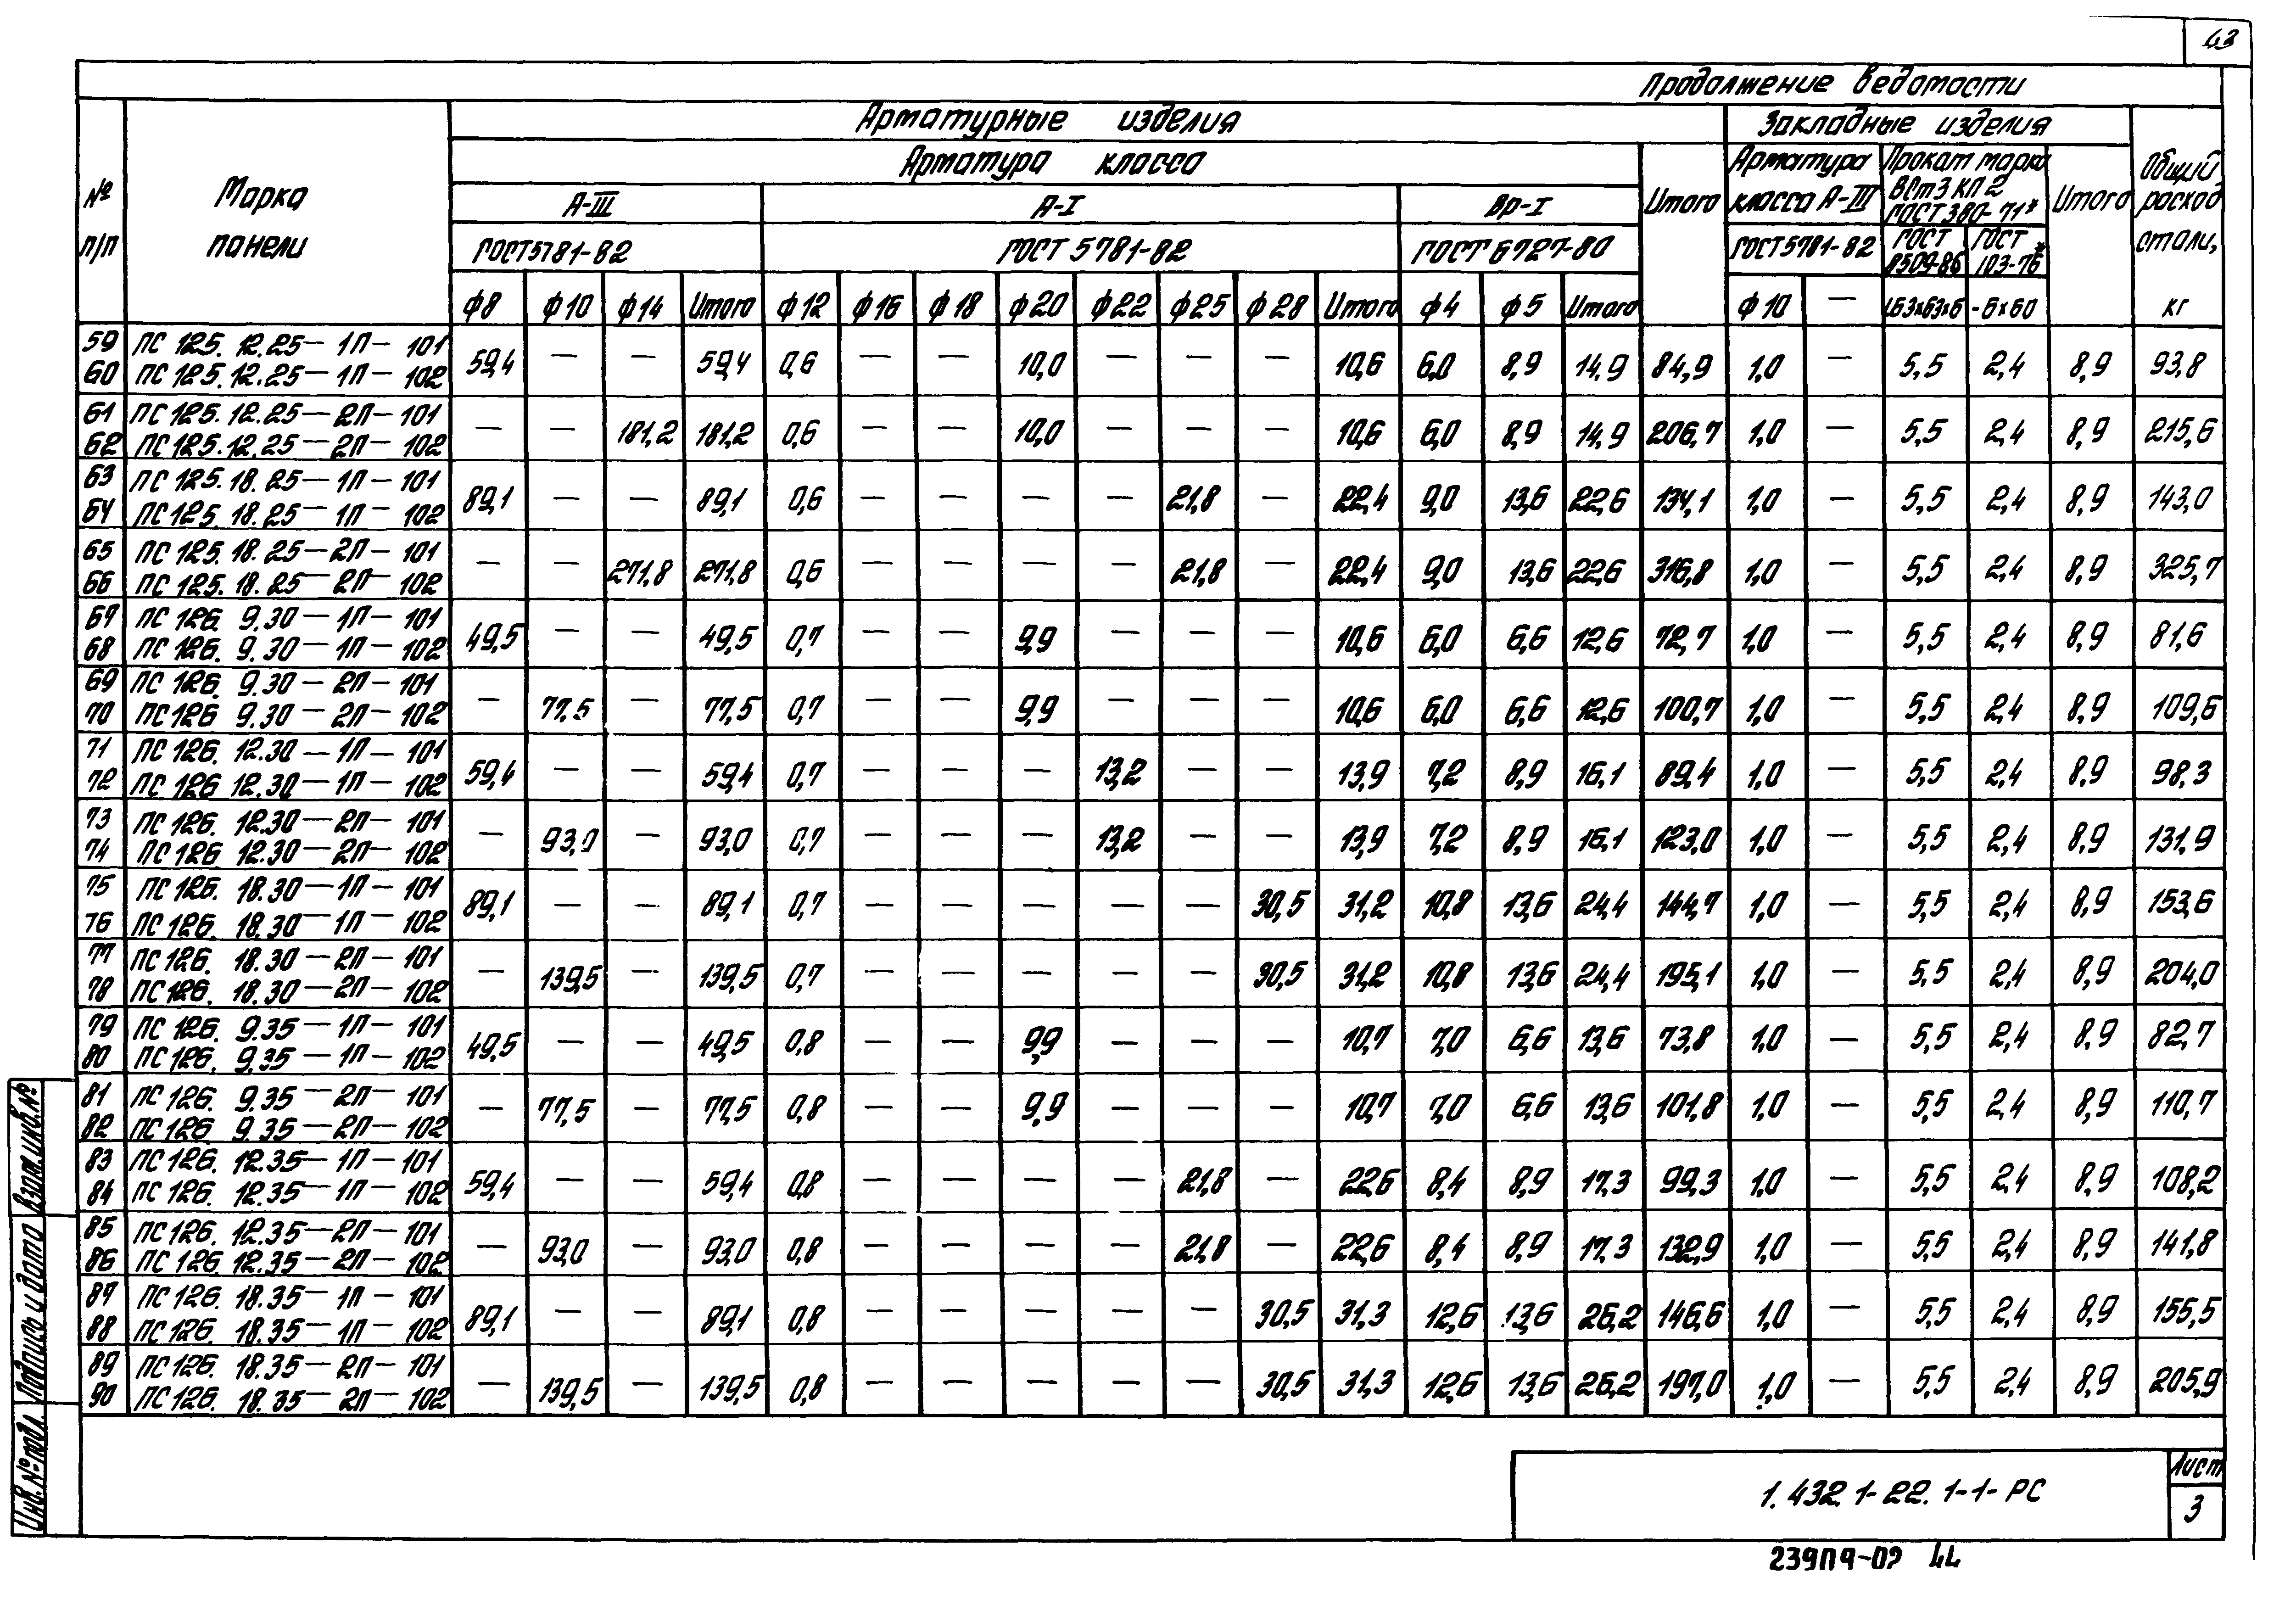 43
Продолжение ведомости
№ п/п
Марка панели
Арматурные изделия
Закладные изделия
Общий расход стали, кг
Арматура класса
Итого
Арматура класса А-III
Прокат марки ВСт3 КП2 ГОСТ 380-71*
Итого
А-III
А-I
Вр-I
ГОСТ 5781-82
ГОСТ 5781-82
ГОСТ 6727-80
ГОСТ 5781-82
ГОСТ 8509-86
ГОСТ 103-76*
ф8 ф10 ф14 Итого ф12 ф16 ф18 ф20 ф22 ф25 ф28 Итого ф4 ф5 Итого ф10 — L63х63х6 -6х60
59 ПС 125. 12.25 — 1П — 101
60 ПС 125. 12.25 — 1П — 102
59,4 — — 59,4 0,6 — — 10,0 — — — 10,6 6,0 8,9 14,9 84,9 1,0 — 5,5 2,4 8,9 93,8
61 ПС 125. 12.25 — 2П — 101
62 ПС 125. 12.25 — 2П — 102
— — 181,2 181,2 0,6 — — 10,0 — — — 10,6 6,0 8,9 14,9 206,7 1,0 — 5,5 2,4 8,9 215,6
63 ПС 125. 18.25 — 1П — 101
64 ПС 125. 18.25 — 1П — 102
89,1 — — 89,1 0,6 — — — — 21,8 — 22,4 9,0 13,6 22,6 134,1 1,0 — 5,5 2,4 8,9 143,0
65 ПС 125. 18.25 — 2П — 101
66 ПС 125. 18.25 — 2П — 102
— — 271,8 271,8 0,6 — — — — 21,8 — 22,4 9,0 13,6 22,6 316,8 1,0 — 5,5 2,4 8,9 325,7
67 ПС 126. 9.30 — 1П — 101
68 ПС 126. 9.30 — 1П — 102
49,5 — — 49,5 0,7 — — 9,9 — — — 10,6 6,0 6,6 12,6 72,7 1,0 — 5,5 2,4 8,9 81,6
69 ПС 126. 9.30 — 2П — 101
70 ПС 126 9.30 — 2П — 102
— 77,5 — 77,5 0,7 — — 9,9 — — — 10,6 6,0 6,6 12,6 100,7 1,0 — 5,5 2,4 8,9 109,6
71 ПС 126. 12.30 — 1П — 101
72 ПС 126 12.30 — 1П — 102
59,4 — — 59,4 0,7 — — — 13,2 — — 13,9 7,2 8,9 16,1 89,4 1,0 — 5,5 2,4 8,9 98,3
73 ПС 126. 12.30 — 2П — 101
74 ПС 126 12.30 — 2П — 102
— 93,0 — 93,0 0,7 — — — 13,2 — — 13,9 7,2 8,9 16,1 123,0 1,0 — 5,5 2,4 8,9 131,9
75 ПС 126. 18.30 — 1П — 101
76 ПС 126. 18.30 — 1П — 102
89,1 — — 89,1 0,7 — — — — — 30,5 31,2 10,8 13,6 24,4 144,7 1,0 — 5,5 2,4 8,9 153,6
77 ПС 126. 18.30 — 2П — 101
78 ПС 126. 18.30 — 2П — 102
— 139,5 — 139,5 0,7 — — — — — 30,5 31,2 10,8 13,6 24,4 195,1 1,0 — 5,5 2,4 8,9 204,0
79 ПС 126. 9.35 — 1П — 101
80 ПС 126. 9.35 — 1П — 102
49,5 — — 49,5 0,8 — — 9,9 — — — 10,7 7,0 6,6 13,6 73,8 1,0 — 5,5 2,4 8,9 82,7
81 ПС 126. 9.35 — 2П — 101
82 ПС 126 9.35 — 2П — 102
— 77,5 — 77,5 0,8 — — 9,9 — — — 10,7 7,0 6,6 13,6 101,8 1,0 — 5,5 2,4 8,9 110,7
83 ПС 126. 12.35 — 1П — 101
84 ПС 126. 12.35 — 1П — 102
59,4 — — 59,4 0,8 — — — — 21,8 — 22,6 8,4 8,9 17,3 99,3 1,0 — 5,5 2,4 8,9 108,2
85 ПС 126. 12.35 — 2П — 101
86 ПС 126. 12.35 — 2П — 102
— 93,0 — 93,0 0,8 — — — — 21,8 — 22,6 8,4 8,9 17,3 132,9 1,0 — 5,5 2,4 8,9 141,8
87 ПС 126. 18.35 — 1П — 101
88 ПС 126. 18.35 — 1П — 102
89,1 — — 89,1 0,8 — — — — — 30,5 31,3 12,6 13,6 26,2 146,6 1,0 — 5,5 2,4 8,9 155,5
89 ПС 126. 18.35 — 2П — 101
90 ПС 126. 18.35 — 2П — 102
— 139,5 — 139,5 0,8 — — — — — 30,5 31,3 12,6 13,6 26,2 197,0 1,0 — 5,5 2,4 8,9 205,9
Взам.инв.№
Подпись и дата
Инв.№подл.
1. 432. 1- 22. 1-1- РС
Лист
3
44